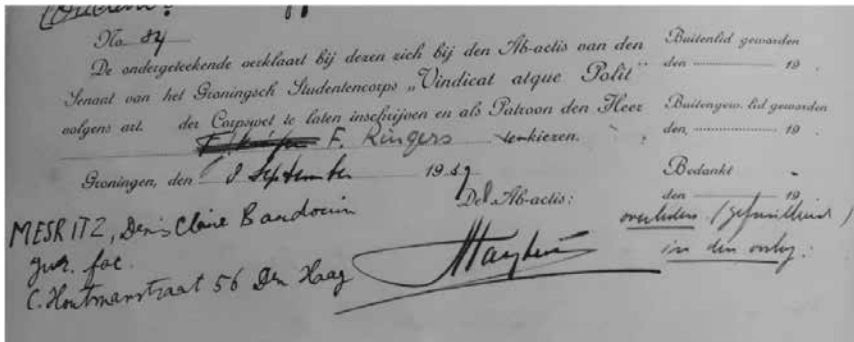 No. 84
De ondergeteekende verklaart bij dezen zich bij den Ab-actis van den
Senaat van het Groningsch Studentencorps „Vindicat atque Polit"
volgens art. der Corpswet te laten inschrijven en als Patroon den Heer
F. Ringers te kiezen.
Groningen, den 8 September 1937
De Ab-actis:
MESRITZ, Denis Claire Baudouin
jur. fac.
C. Houtmanstraat 56 Den Haag
Buitenlid geworden
den 19 .
Buitengew. lid geworden
den, 19 .
Bedankt
den 19
overleden (gefusilleerd)
in den oorlog.